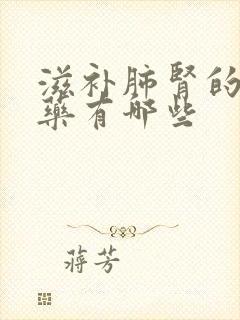 滋补肺肾的
藥有哪些
蒋芳